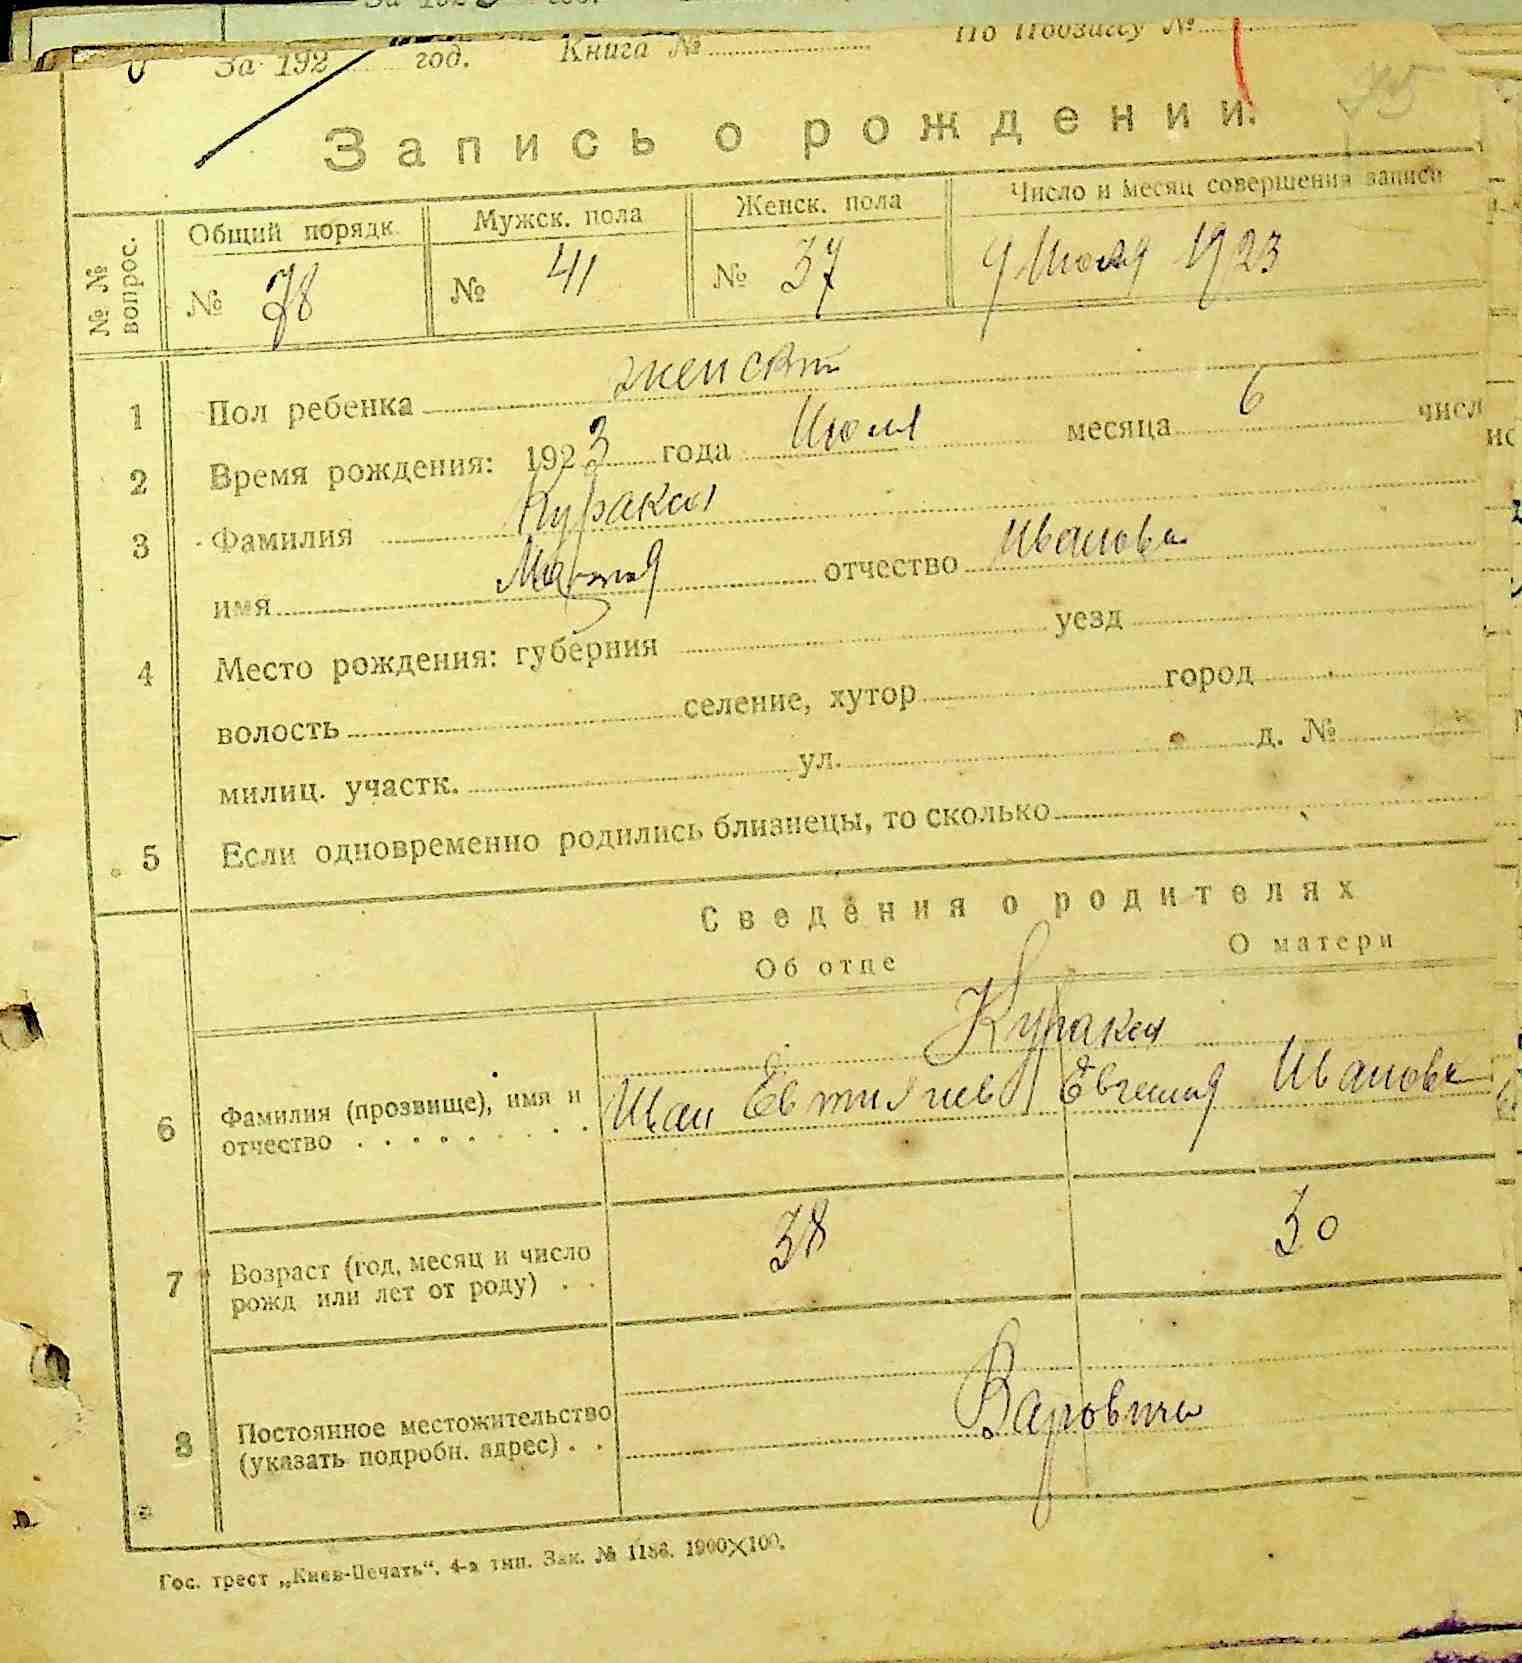 За 192 год. Книга № По Подзапису №
Запись о рождении.
№ № вопрос.
Общий порядк. Мужск. пола Женск. пола Число и месяц совершения записи
№ 78 № 41 № 37 9 Июля 1923
1 Пол ребенка женск
2 Время рождения: 1923 года Июля месяца 6 числ
3 Фамилия Куракса
имя Мария отчество Иванова
4 Место рождения: губерния уезд
волость селение, хутор город
милиц. участк. ул. д. №
5 Если одновременно родились близнецы, то сколько
Сведения о родителях
Об отце О матери
Куракса
6 Фамилия (прозвище), имя и
отчество Иван Евтихиев Евгения Иванова
7 Возраст (год, месяц и число
рожд или лет от роду) 38 30
8 Постоянное местожительство
(указать подробн. адрес) Варовичи
Гос. трест „Киев-Печать“. 4-а тип. Зак. № 1186. 1900×100.